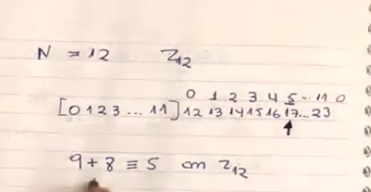 N = 12 Z12
0 1 2 3 4 5 - - 11 0
[0 1 2 3 ... 11] 12 13 14 15 16 17 ... 23
9 + 8 ≡ 5 en Z12